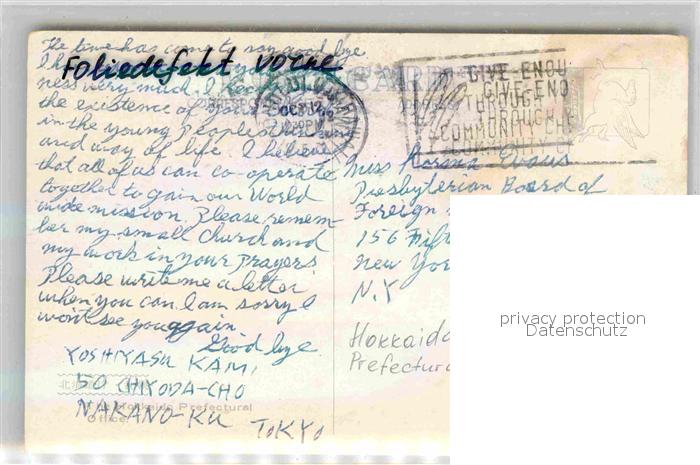 The time has come to say good bye
Foliedefekt vorne
ness very much. I
the existence of your
in the young people
and way of life. I believe
that all of us can co-operate
together to gain our World
wide mission. Please remem-
ber my small Church and
my work in your prayers
Please write me a letter
when you can. I am sorry I
won't see you again.
Good bye
YOSHIYASU KAMI
50 CHIYODA-CHO
NAKANO-KU TOKYO
Hokkaido Prefectural
Office
OCT 12
GIVE ENOU
GIVE ENO
THROUGH
THROUGH
COMMUNITY CH
Miss Norma Evans
Presbyterian Board of
Foreign
156 Fift
New Yor
N.Y
Hokkaido
Prefectura
privacy protection
Datenschutz